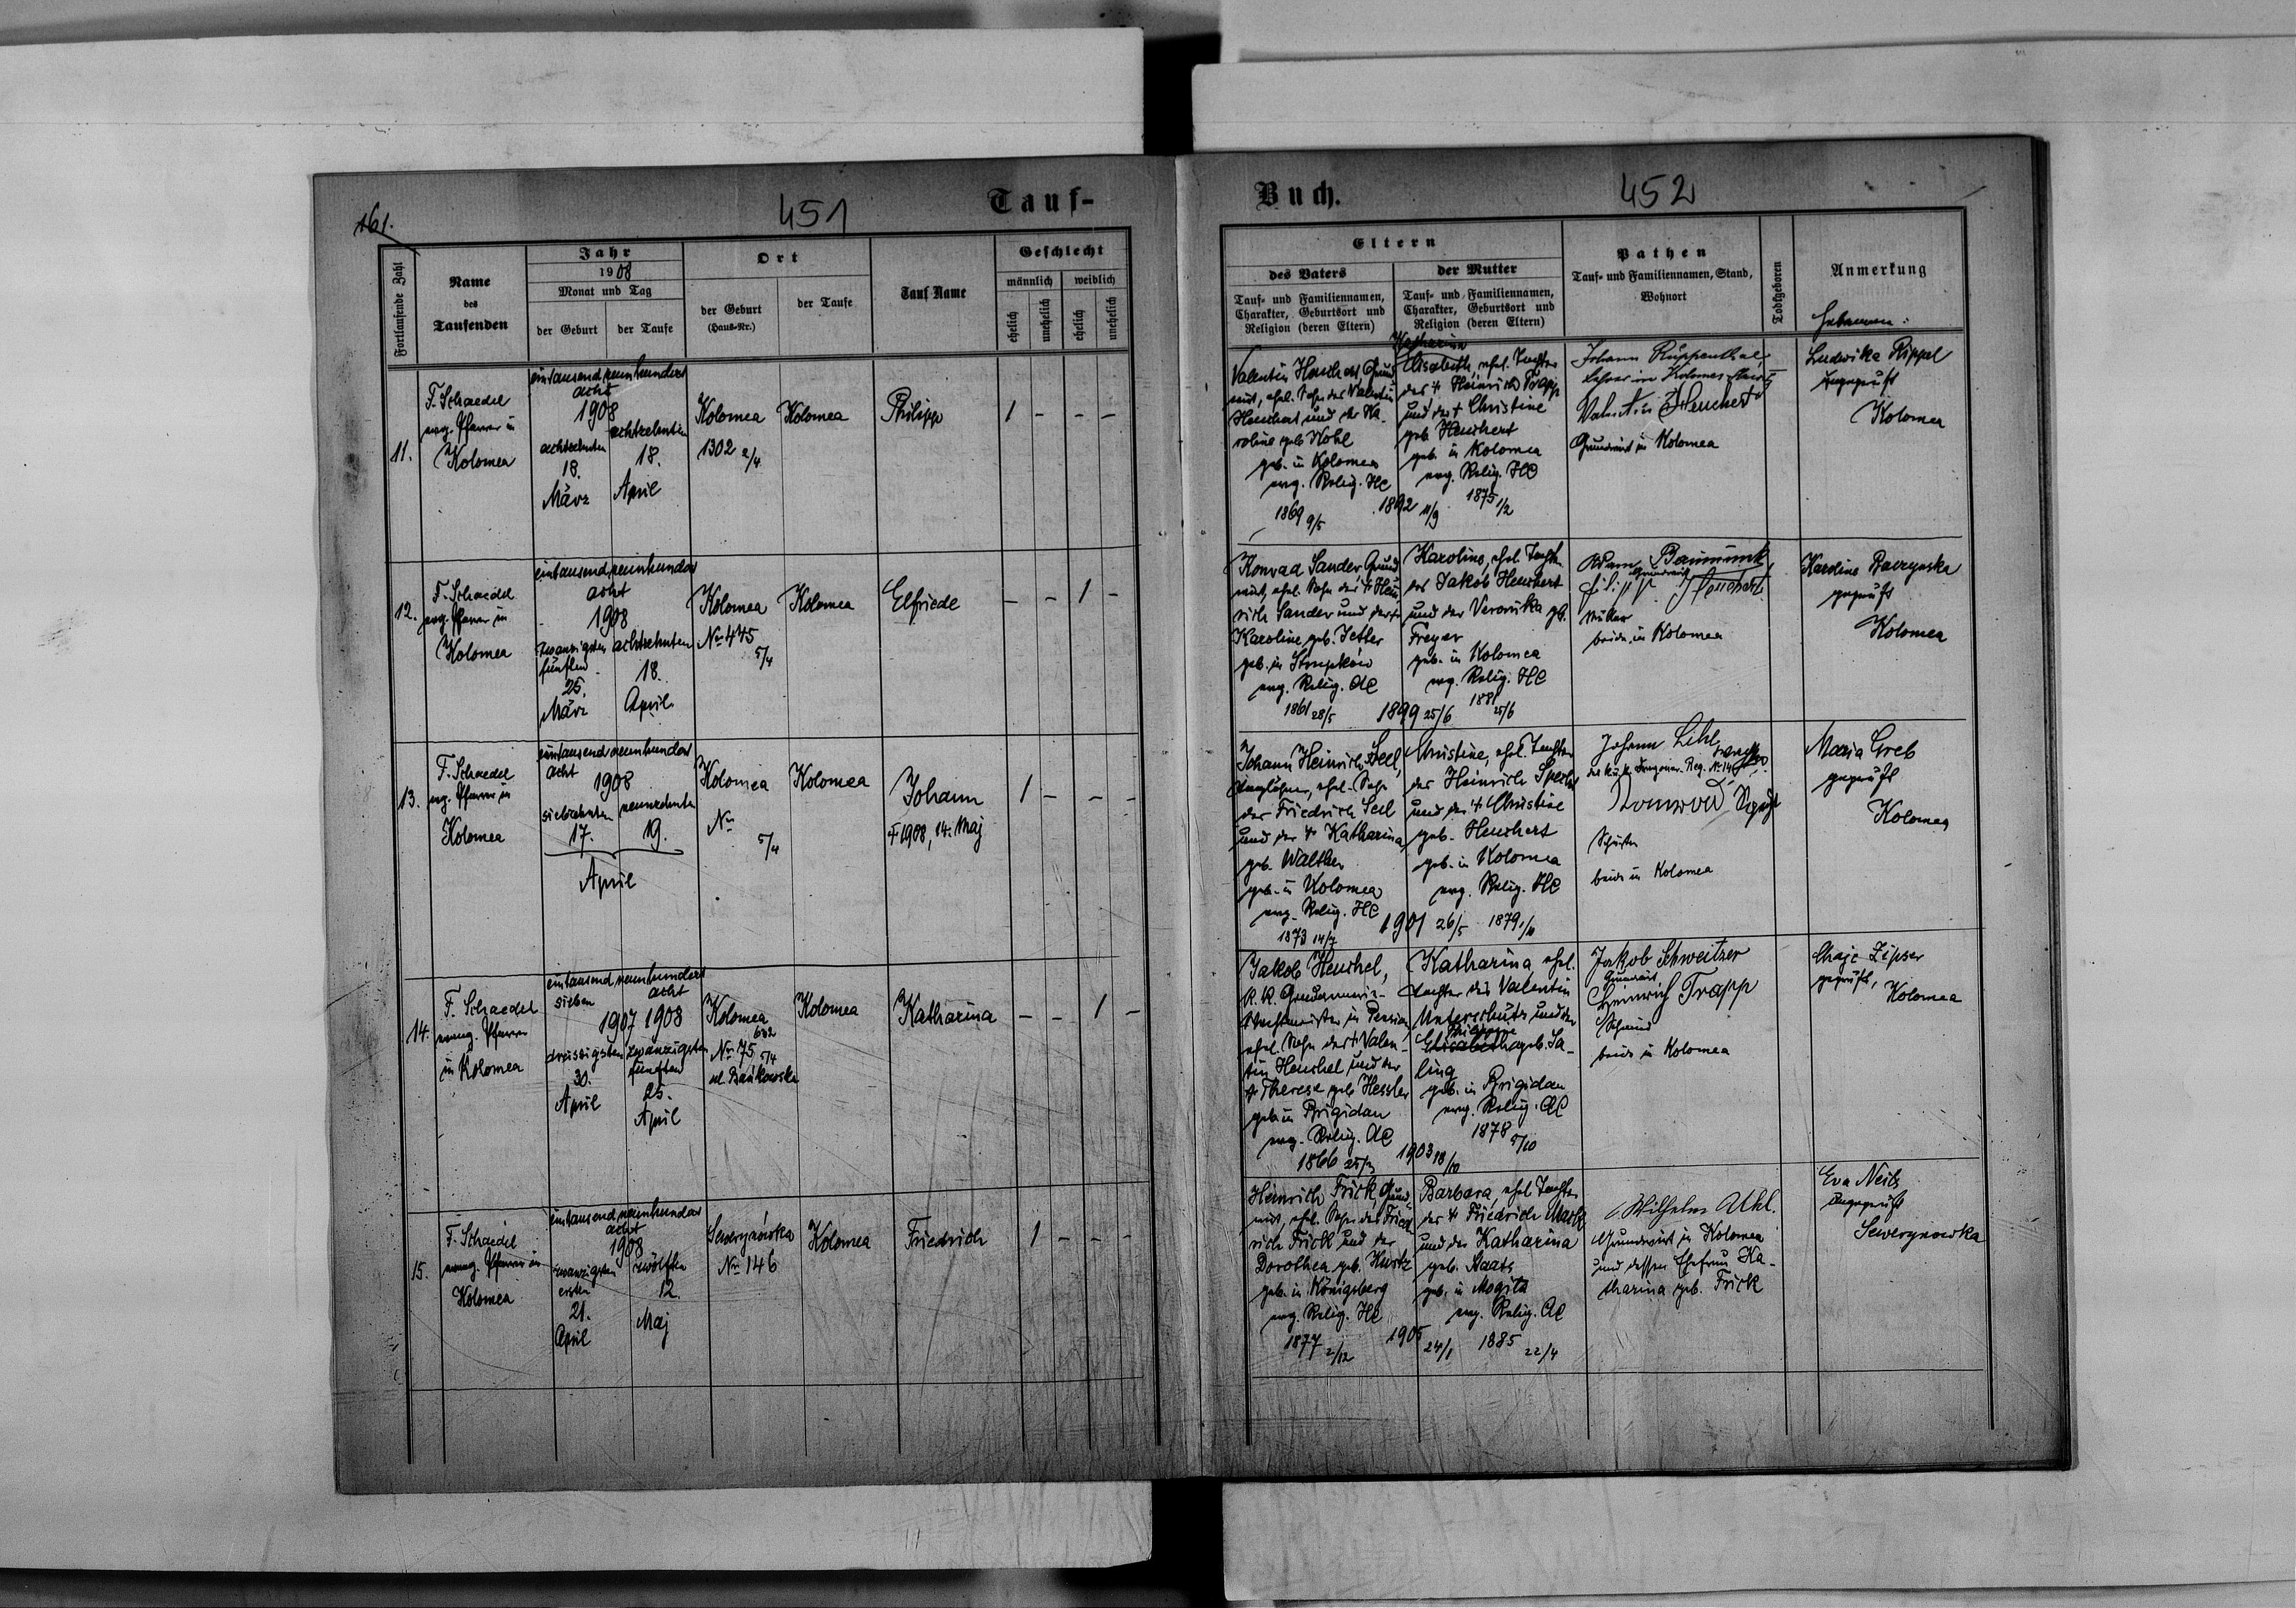 161.
451
Tauf-
Fortlaufende Zahl
Name
des
Taufenden
Jahr
1908
Monat und Tag
der Geburt
der Taufe
Ort
der Geburt
(Haus-Nr.)
der Taufe
Tauf-Name
Geschlecht
männlich
weiblich
ehelich
unehelich
ehelich
unehelich
11.
F. Schaedel
evg. Pfarrer in
Kolomea
eintausendneunhundert
acht
1908
achtzehnten
18.
März
achtzehnten
18.
April
Kolomea
1302 2/4
Kolomea
Philipp
1 - - -
12.
F. Schaedel
evg. Pfarrer in
Kolomea
eintausendneunhundert
acht
1908
zwanzigsten
fünften
25.
März
achtzehnten
18.
April
Kolomea
No 445
5/4
Kolomea
Elfriede
- - 1 -
13.
F. Schaedel
evg. Pfarrer in
Kolomea
eintausendneunhundert
acht
1908
siebzehnten
17.
neunzehnten
19.
April
Kolomea
No
5/4
Kolomea
Johann
† 1908, 14. Maj
1 - - -
14.
F. Schaedel
evang. Pfarrer
in Kolomea
eintausendneunhundert
sieben
acht
1907 1908
dreissigsten
30.
April
zwanzigsten
fünften
25.
April
Kolomea
632
No 75 5/4
ul. Bańkowska
Kolomea
Katharina
- - 1 -
15.
F. Schaedel
evang. Pfarrer in
Kolomea
eintausendneunhundert
acht
1908
zwanzigsten
ersten
21.
April
zwölften
12.
Maj
Sewerynówka
No 146
Kolomea
Friedrich
1 - - -
Buch.
452
Eltern
des Vaters
Tauf- und Familiennamen,
Charakter, Geburtsort und
Religion (deren Eltern)
der Mutter
Tauf- und Familiennamen,
Charakter, Geburtsort und
Religion (deren Eltern)
Pathen
Tauf- und Familiennamen, Stand,
Wohnort
Todtgeboren
Anmerkung
Hebammen:
Valentin Heuchert Grund
wirt, ehel. Sohn des Valentin
Heuchert und der Ka-
roline geb. Kohl
geb. in Kolomea
evg. Relig. HC
1869 9/5
1892 11/9
Katharina
Elisabeth, ehel. Tochter
des † Heinrich Trapp
und der † Christine
geb. Heuchert
geb. in Kolomea
evg. Relig. HC
1875 1/2
Johann Ruppenthal
Lehrer in Kolomea
Valentin Heuchert
Grundwirt in Kolomea
Ludwika Rippel
ungeprüft
Kolomea
Konrad Sander Grund
wirt, ehel. Sohn des † Hein
rich Sander und der †
Karoline geb. Jetter
geb. in Strupków
evg. Relig. AC
1861 28/5
1899 25/6
Karoline, ehel. Tochter
des Jakob Heuchert
und der Veronika geb.
Freyer
geb. in Kolomea
evg. Relig. HC
1881 25/6
Adam Baumunk
Grundwirt
Heuchert
Müller
beide in Kolomea
Karoline Baczynska
geprüft
Kolomea
Johann Heinrich Seel,
Taglöhner, ehel. Sohn
des Friedrich Seel
und der † Katharina
geb. Walther
geb. in Kolomea
evg. Relig. HC
1873 14/7
1901 26/5
Christine, ehel. Tochter
des Heinrich Sperber
und der † Christine
geb. Heuchert
geb. in Kolomea
evg. Relig. HC
1879 1/10
Johann Lihl,
des k.u.k. Dragoner-Reg. No 14
Konrad
Schuster
beide in Kolomea
Maria Greb
geprüft
Kolomea
Jakob Henschel,
k. k. Gendarmerie-
Wachtmeister in Pension
ehel. Sohn des † Valen-
tin Henschel und der
† Therese geb. Hessler
geb. in Brigidau
evg. Relig. AC
1866 25/3
1903 18/10
Katharina, ehel.
Tochter des Valentin
Unterschütz und der
Philippine
Elisabetha geb. Sa-
ling
geb. in Brigidau
evg. Relig. AC
1878 5/10
Jakob Schweitzer
Grundwirt
Heinrich Trapp
Schmied
beide in Kolomea
Chaje Zipser
geprüft,
Kolomea
Heinrich Frick, Grund-
wirt, ehel. Sohn des Fried
rich Frick und der
Dorothea geb. Kurtz
geb. in Königsberg
evg. Relig. HC
1877 2/12
1905 24/1
Barbara, ehel. Tochter
des † Friedrich Mack
und der Katharina
geb. Staats
geb. in Mogila
evg. Relig. AC
1885 22/4
Wilhelm Uhl.
Grundwirt in Kolomea
und dessen Ehefrau Ka-
tharina geb. Frick
Eva Neils
ungeprüft
Sewerynowka